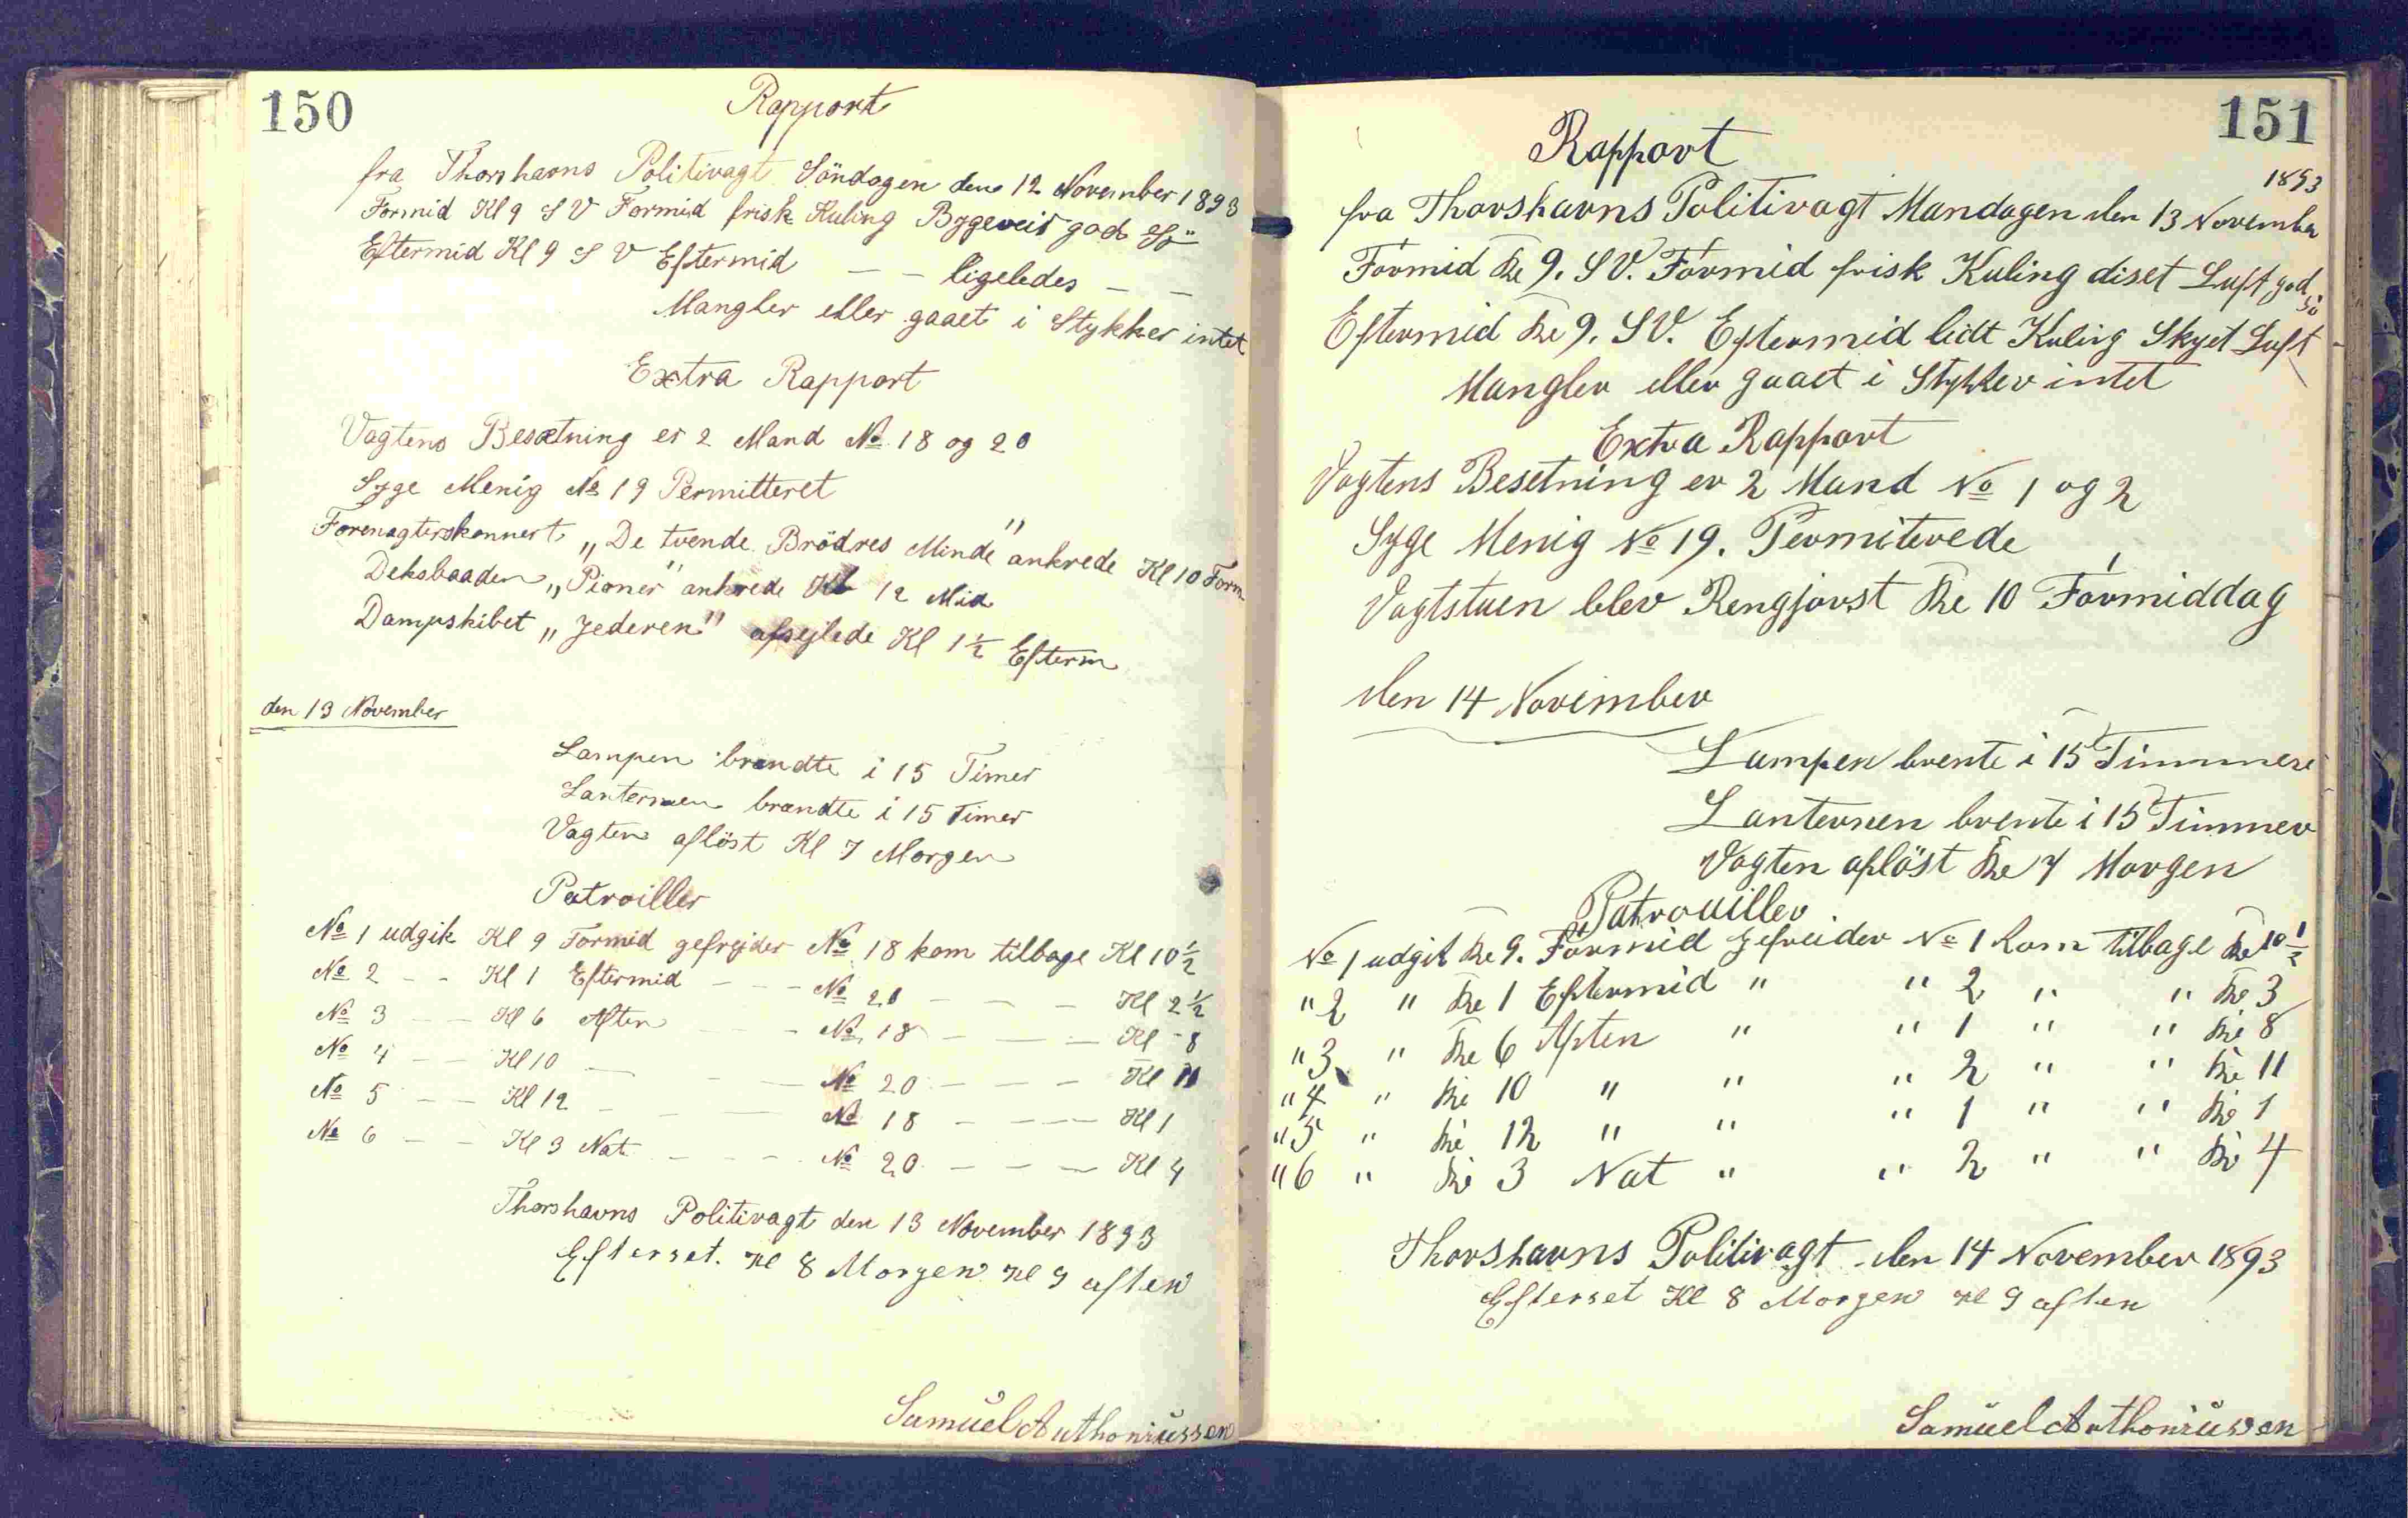 150
Rapport
fra Thorshavns Politivagt Söndagen den 12 November 1893
Formid Kl 9 S V Formid frisk Kuling Bygeveir god Sö
Eftermid Kl 9 S V Eftermid — — ligeledes — —
Mangler eller gaaet i Stykker intet
Extra Rapport
Vagtens Besætning er 2 Mand No 18 og 20
Syge Menig No 19 Permitteret
Forenagterskonnert „De tvende Brödres Minde" ankrede Kl 10 Form
Deksbaaden „Pioner" ankrede Kl 12 Mid
Dampskibet „Jederen" afsejlede Kl 1½ Efterm
den 13 November
Lampen brandte i 15 Timer
Lanternen brandte i 15 Timer
Vagten aflöst Kl 7 Morgen
Patroiller
No 1 udgik Kl 9 Formid gefrejder No 18 kom tilbage Kl 10½
No 2 — — Kl 1 Eftermid — — — No 20 — — — Kl 2½
No 3 — — Kl 6 Aften — — — No 18 — — — Kl 8
No 4 — — Kl 10 — — — No 20 — — — Kl 11
No 5 — — Kl 12 — — — No 18 — — — Kl 1
No 6 — — Kl 3 Nat — — — No 20 — — — Kl 4
Thorshavns Politivagt den 13 November 1893
Efterset. Kl 8 Morgen Kl 9 aften
Samuel Anthoniussen
151
Rapport
1893
fra Thorshavns Politivagt Mandagen den 13 November
Formid Kl 9. SV. Formid frisk Kuling diset Luft god Sö
Eftermid Kl 9. SV. Eftermid lidt Kuling Skyet Luft
Mangler eller gaaet i Stykker intet
Extra Rapport
Vagtens Besetning er 2 Mand No 1 og 2
Syge Menig No 19. Permiterede
Vagtstuen blev Rengjorst Kl 10 Formiddag
den 14 November
Lampen brente i 15 Timmer
Lanternen brente i 15 Timmer
Vagten aflöst Kl 7 Morgen
Patrouiller
No 1 udgik Kl 9. Formid gefreider No 1 kom tilbage Kl 10½
" 2 " Kl 1 Eftermid " " 2 " " Kl 3
" 3 " Kl 6 Aften " " 1 " " Kl 8
" 4 " Kl 10 " " " 2 " " Kl 11
" 5 " Kl 12 " " " 1 " " Kl 1
" 6 " Kl 3 Nat " " 2 " " Kl 4
Thorshavns Politivagt den 14 November 1893
Efterset Kl 8 Morgen Kl 9 aften
Samuel Anthoniussen